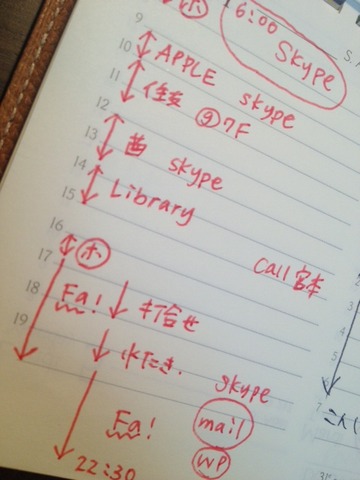 ホ 6:00
Skype
9
10 APPLE skype
11 住友
12 ⑨7F
13 歯 skype
14
15 Library
16
17 ホ Call 宮本
18 Fa! 打合せ
19
skype
Fa! mail
WP
22:30